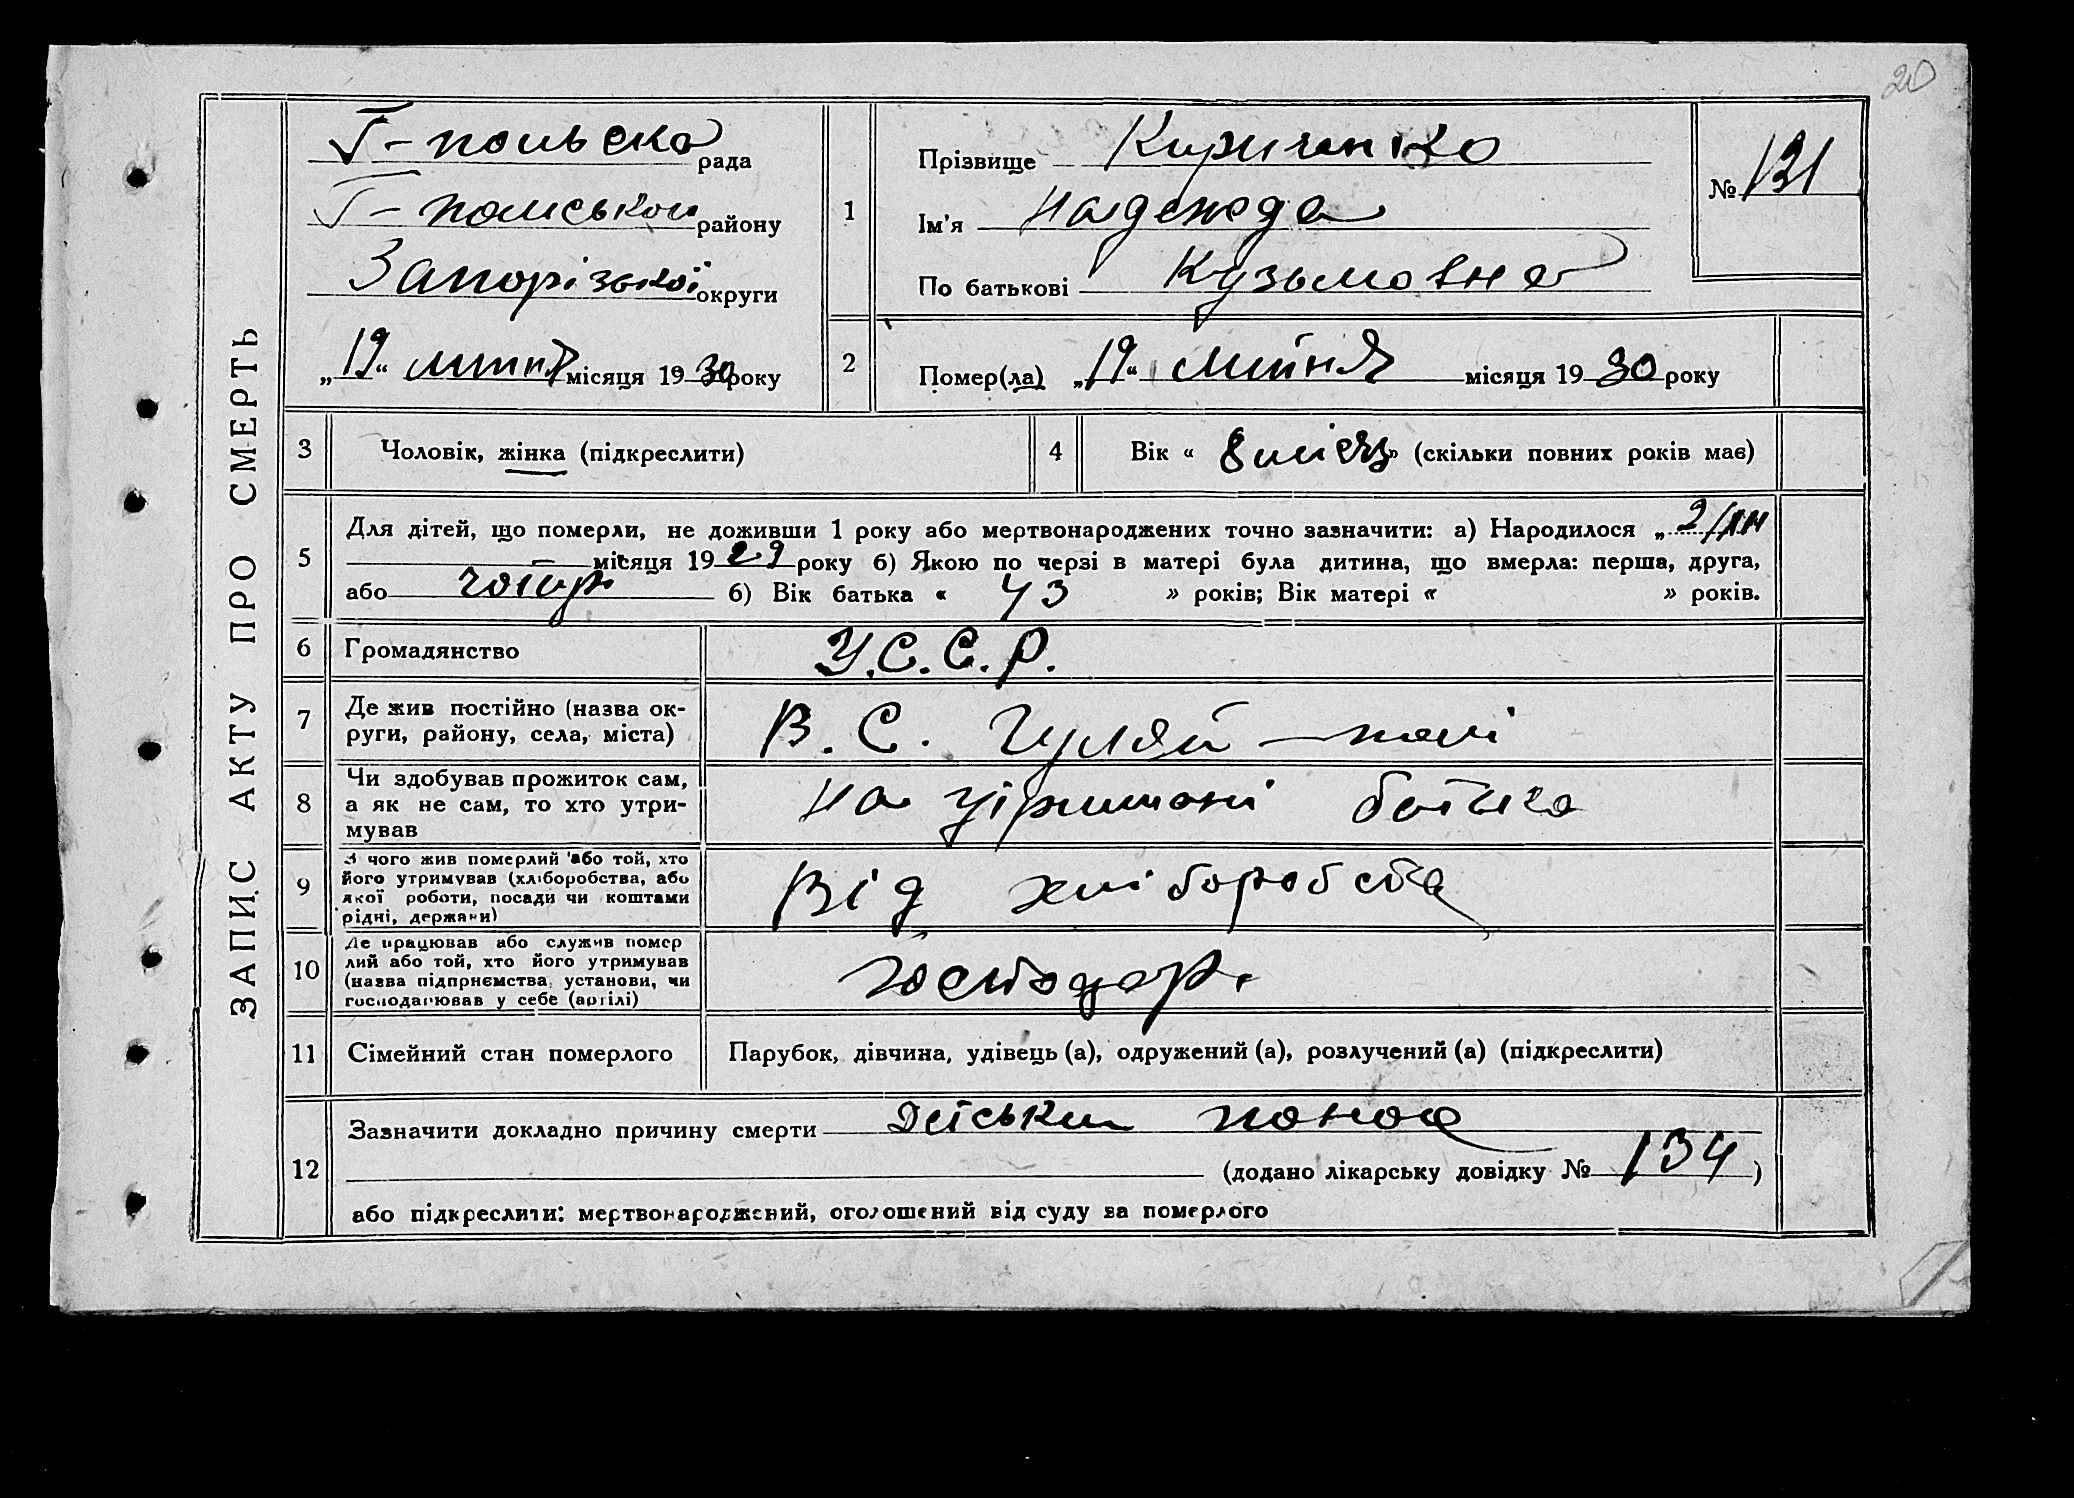 20
ЗАПИС АКТУ ПРО СМЕРТЬ
Г-польска рада
Г-польської району
Запорізької округи
„19“ липня місяця 1930 року
1
Прізвище Кириченко
Ім'я Надежда
По батькові Кузьмовна
№ 131
2
Помер(ла) „19“ липня місяця 1930 року
3
Чоловік, жінка (підкреслити)
4
Вік « 8 місяц» (скільки повних років має)
5
Для дітей, що померли, не доживши 1 року або мертвонароджених точно зазначити: а) Народилося „
місяця 1929 року б) Якою по черзі в матері була дитина, що вмерла: перша, друга,
або чотир б) Вік батька « 43 » років; Вік матері « » років.
6
Громадянство
У.С.С.Р.
7
Де жив постійно (назва ок-
руги, району, села, міста)
В. С. Гуляй-полі
8
Чи здобував прожиток сам,
а як не сам, то хто утри-
мував
на утриманні батька
9
З чого жив померлий або той, хто
його утримував (хліборобства, або
якої роботи, посади чи коштами
рідні, держави)
Від хліборобства
10
Де працював або служив помер
лий або той, хто його утримував
(назва підприємства, установи, чи
господарював у себе (артілі)
господар.
11
Сімейний стан померлого
Парубок, дівчина, удівець (а), одружений (а), розлучений (а) (підкреслити)
12
Зазначити докладно причину смерти Дітський понос
(додано лікарську довідку № 134)
або підкреслити: мертвонароджений, оголошений від суду за померлого